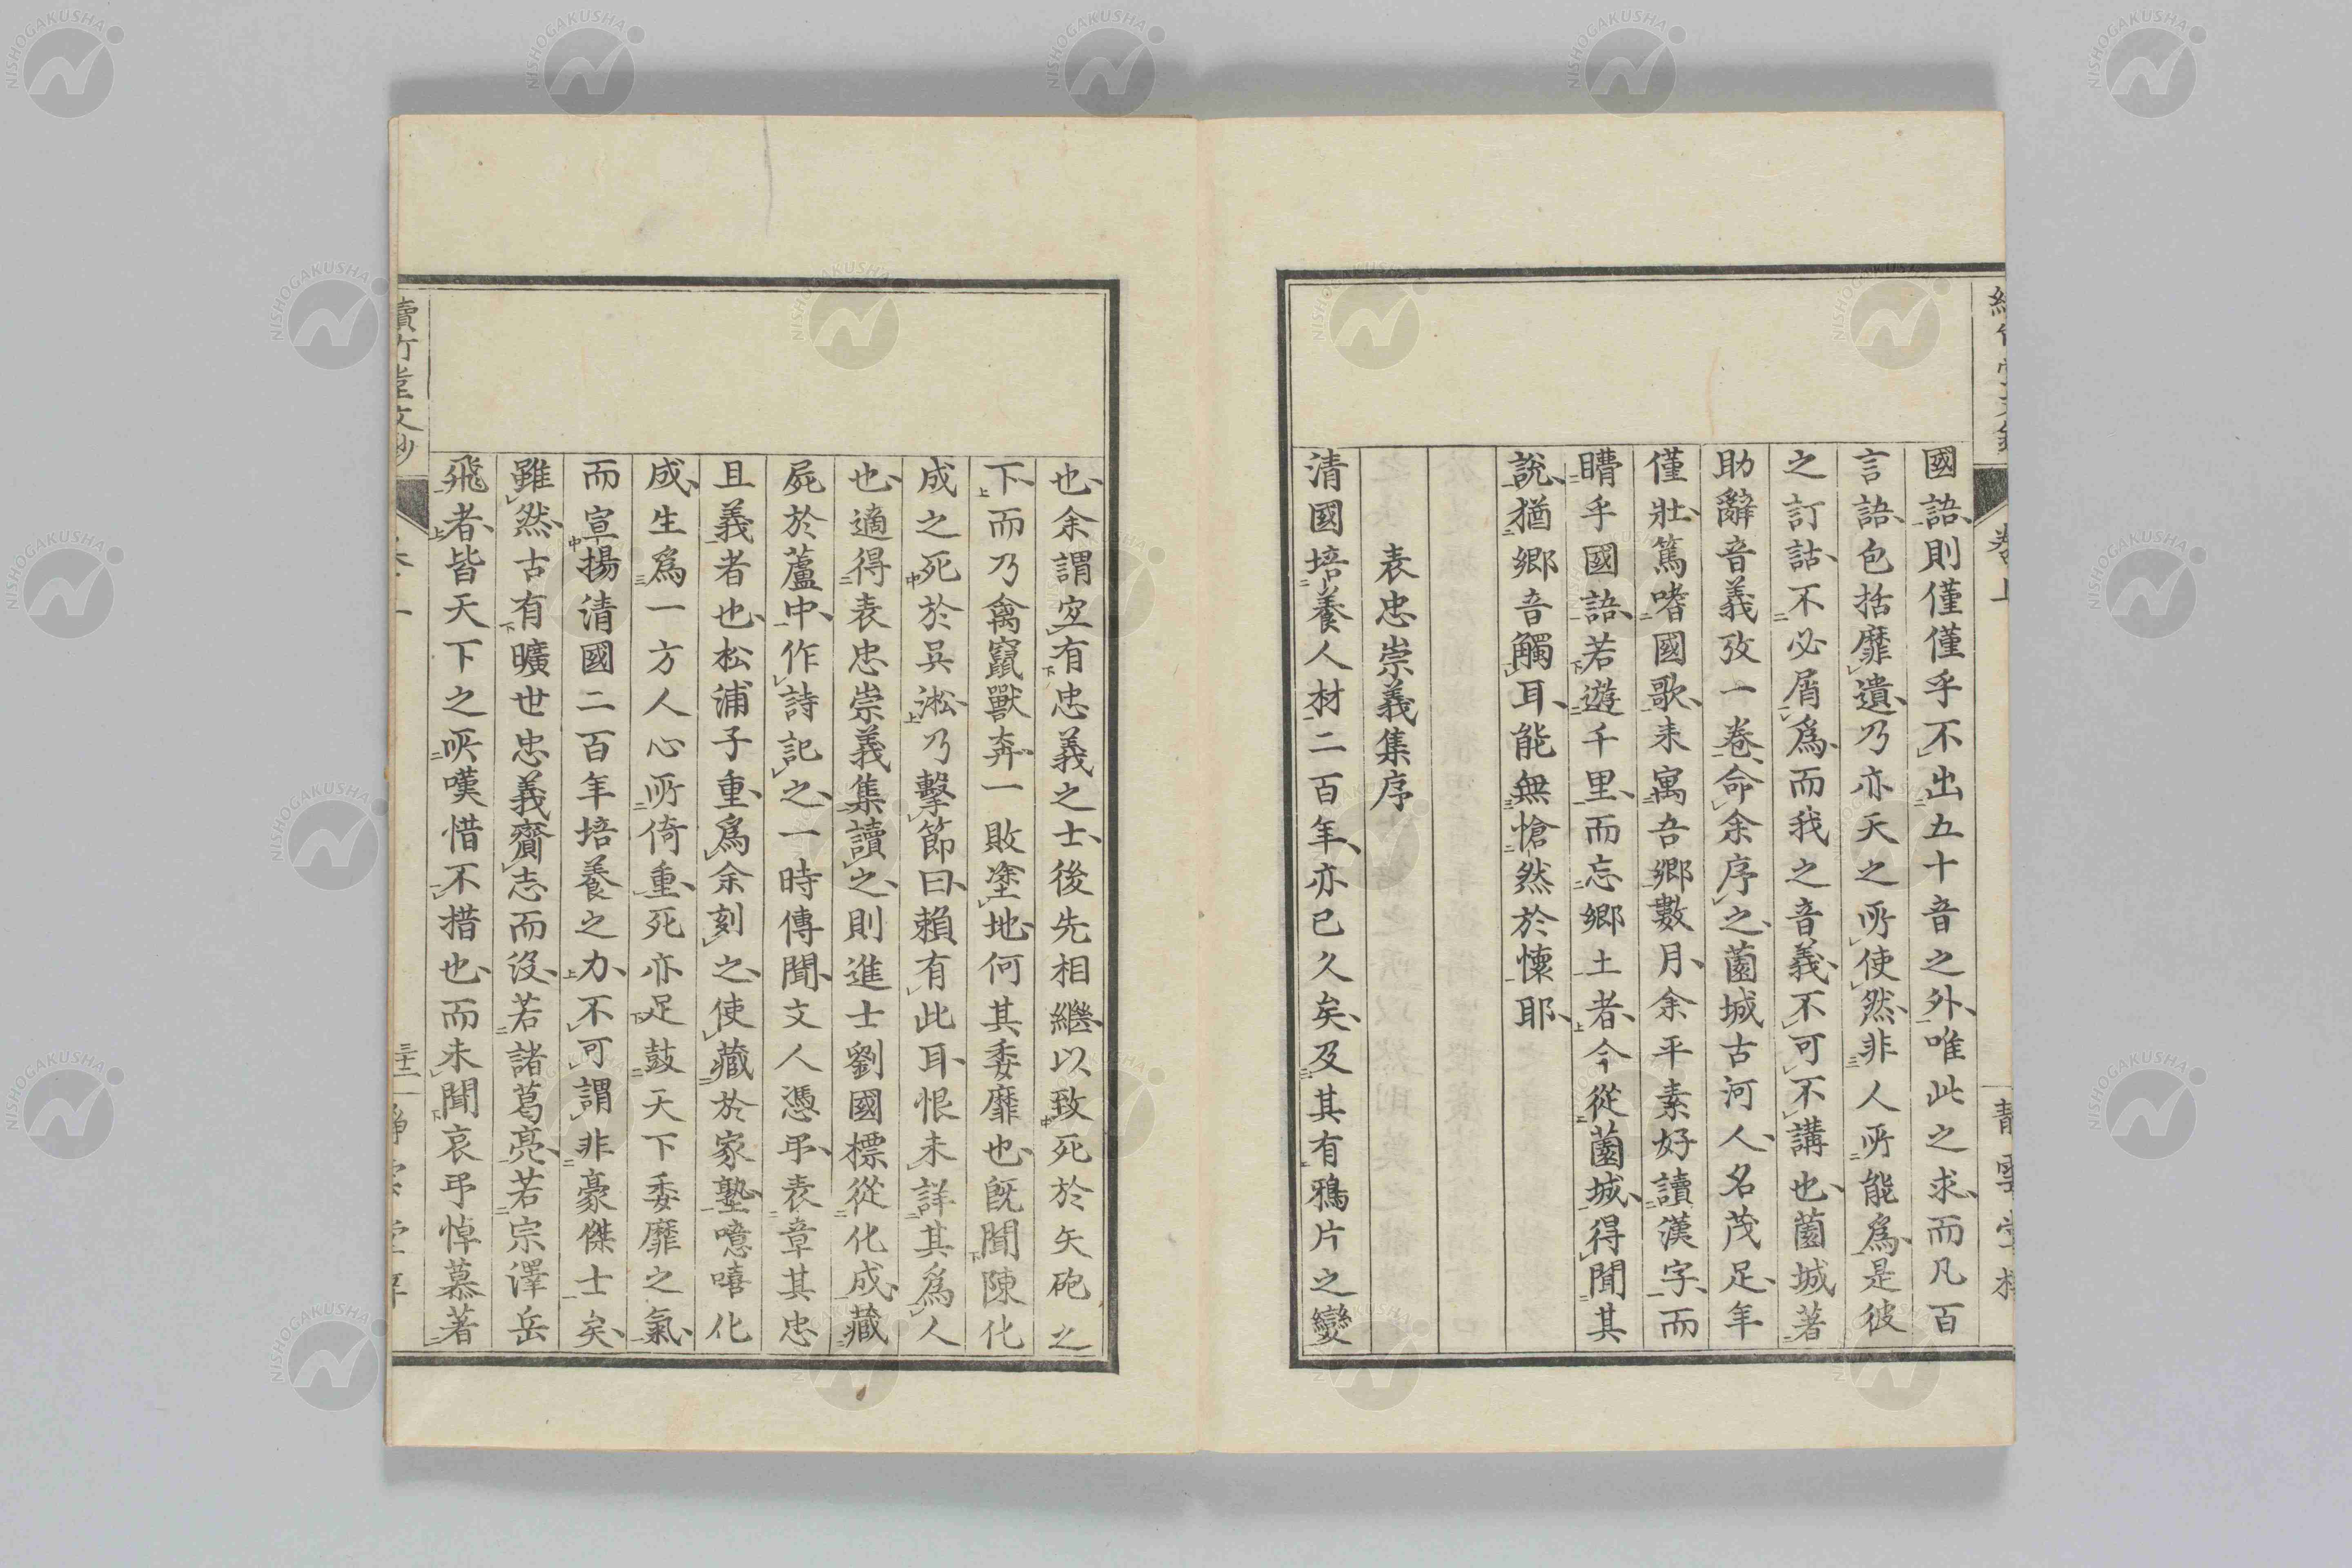 國語則僅僅乎不出五十音之外唯此之求而凡百
言語包括靡遺乃亦天之所使然非人所能爲是彼
之訂詁不必屑爲而我之音義不可不講也薗城著
助辭音義攷一卷命余序之薗城古河人名茂足年
僅壯篤嗜國歌来寓吾鄉數月余平素好讀漢字而
瞢乎國語若遊千里而忘鄉土者今從薗城得聞其
說猶鄉音觸耳能無愴然於懷耶
表忠崇義集序
清國培養人材二百年亦已久矣及其有鴉片之變
也余謂宜有忠義之士後先相繼以致死於矢砲之
下而乃禽竄獸奔一敗塗地何其委靡也既聞陳化
成之死於吳淞乃擊節曰賴有此耳恨未詳其爲人
也適得表忠崇義集讀之則進士劉國標從化成藏
屍於蘆中作詩記之一時傳聞文人憑弔表章其忠
且義者也松浦子重爲余刻之使藏於家塾噫嘻化
成生爲一方人心所倚重死亦足鼓天下委靡之氣
而宣揚清國二百年培養之力不可謂非豪傑士矣
雖然古有曠世忠義齎志而沒若諸葛亮若宗澤岳
飛者皆天下之所嘆惜不措也而未聞哀弔悼慕著
續竹堂文鈔
NISHOGAKUSHA